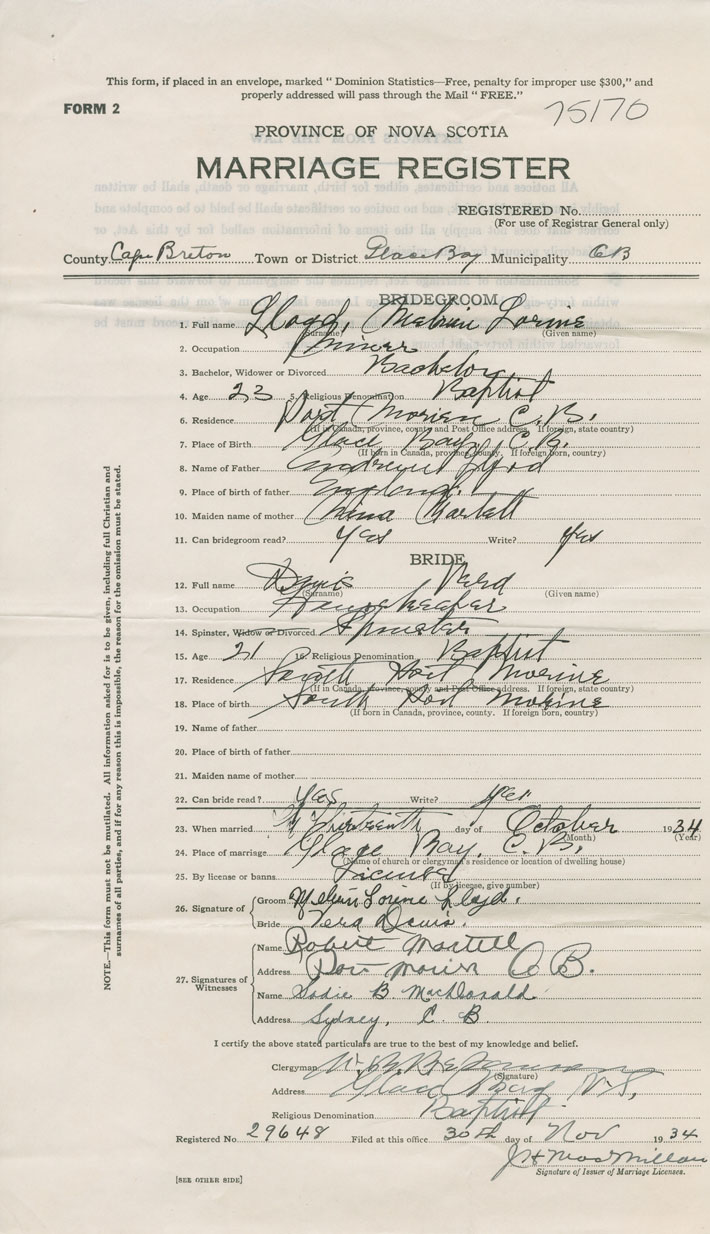 This form, if placed in an envelope, marked " Dominion Statistics—Free, penalty for improper use $300," and
properly addressed will pass through the Mail " FREE."
FORM 2
75170
PROVINCE OF NOVA SCOTIA
MARRIAGE REGISTER
REGISTERED No.
(For use of Registrar General only)
County Cape Breton Town or District Glace Bay Municipality CB
BRIDEGROOM
1. Full name Lloyd, Melvin Lorine
(Surname) (Given name)
2. Occupation Miner
3. Bachelor, Widower or Divorced Bachelor
4. Age 23 5. Religious Denomination Baptist
6. Residence Port Morien C.B.
(If in Canada, province, county and Post Office address. If foreign, state country)
7. Place of Birth Glace Bay, C.B.
(If born in Canada, province, county. If foreign born, country)
8. Name of Father Lloyd
9. Place of birth of father England.
10. Maiden name of mother
11. Can bridegroom read? Yes Write? Yes
BRIDE
12. Full name Davis Vera
(Surname) (Given name)
13. Occupation Housekeeper
14. Spinster, Widow or Divorced Spinster
15. Age 21 16. Religious Denomination Baptist
17. Residence South Port Morine
(If in Canada, province, county and Post Office address. If foreign, state country)
18. Place of birth South Port Morine
(If born in Canada, province, county. If foreign born, country)
19. Name of father
20. Place of birth of father
21. Maiden name of mother
22. Can bride read? Yes Write? Yes
23. When married Thirteenth day of October 1934
(Month) (Year)
24. Place of marriage Glace Bay, C.B.
(Name of church or clergyman's residence or location of dwelling house)
25. By license or banns License
(If by license, give number)
26. Signature of Groom Melvin Lorine Lloyd.
Bride Vera Davis.
27. Signatures of Witnesses Name Robert Martell
Address Port Morien C B.
Name Sadie B MacDonald
Address Sydney, C. B.
I certify the above stated particulars are true to the best of my knowledge and belief.
Clergyman
(Signature)
Address Glace Bay N.S.
Religious Denomination Baptist
Registered No. 29648 Filed at this office 30th day of Nov 1934
J H MacMillan
Signature of Issuer of Marriage Licenses.
[SEE OTHER SIDE]
NOTE.—This form must not be mutilated. All information asked for is to be given, including full Christian and
surnames of all parties, and if for any reason this is impossible, the reason for the omission must be stated.